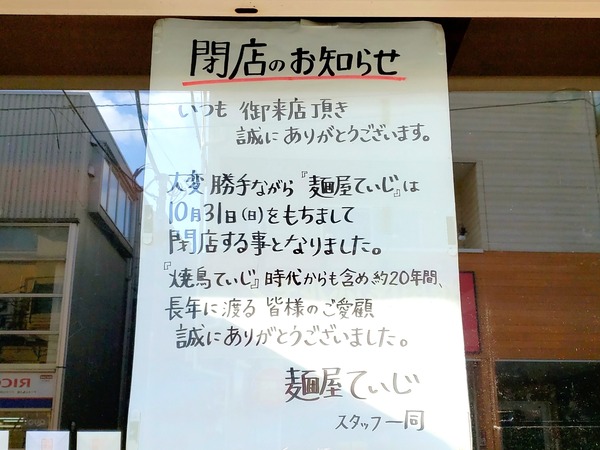 閉店のお知らせ
いつも 御来店頂き
誠にありがとうございます。
大変 勝手ながら『麺屋ていじ』は
10月31日(日)をもちまして
閉店する事となりました。
『焼鳥ていじ』時代からも含め約20年間、
長年に渡る 皆様のご愛顧
誠にありがとうございました。
麺屋ていじ
スタッフ一同
RICO